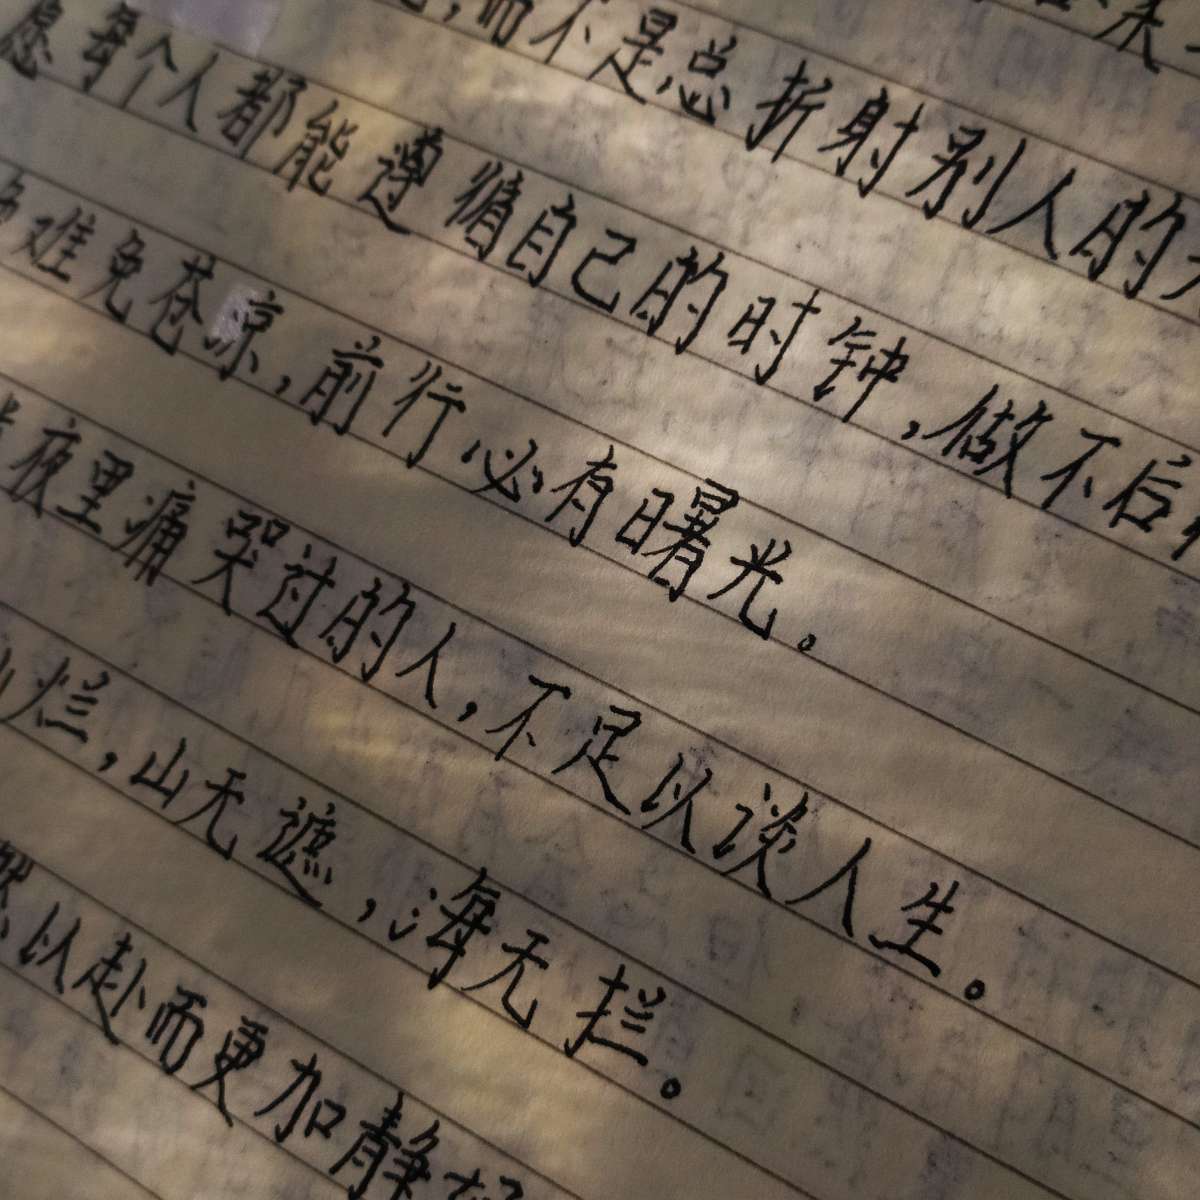 而不是总折射别人的
愿每个人都能遵循自己的时钟,做不后
难免苍凉,前行必有曙光。
夜里痛哭过的人,不足以谈人生。
烂,山无遮,海无拦。
以赴而更加静